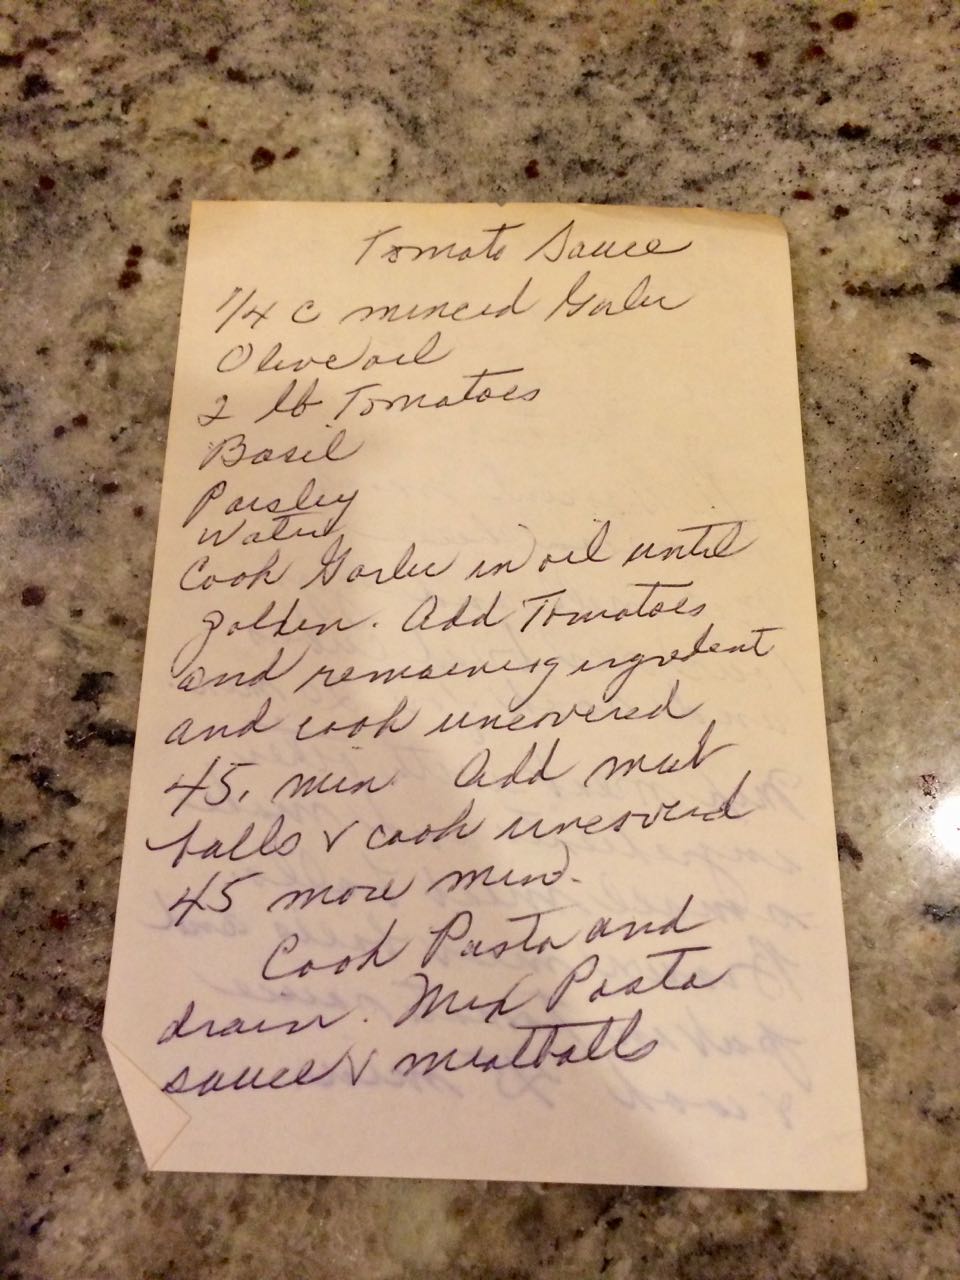 Tomato Sauce
1/4 c minced Garlic
Olive oil
2 lb Tomatoes
Basil
Parsley
Water
Cook Garlic in oil until
golden. Add Tomatoes
and remaining ingredent
and cook uncovered
45, min Add meat
balls & cook uncovered
45 more min.
Cook Pasta and
drain. Mix Pasta
sauce & meatballs